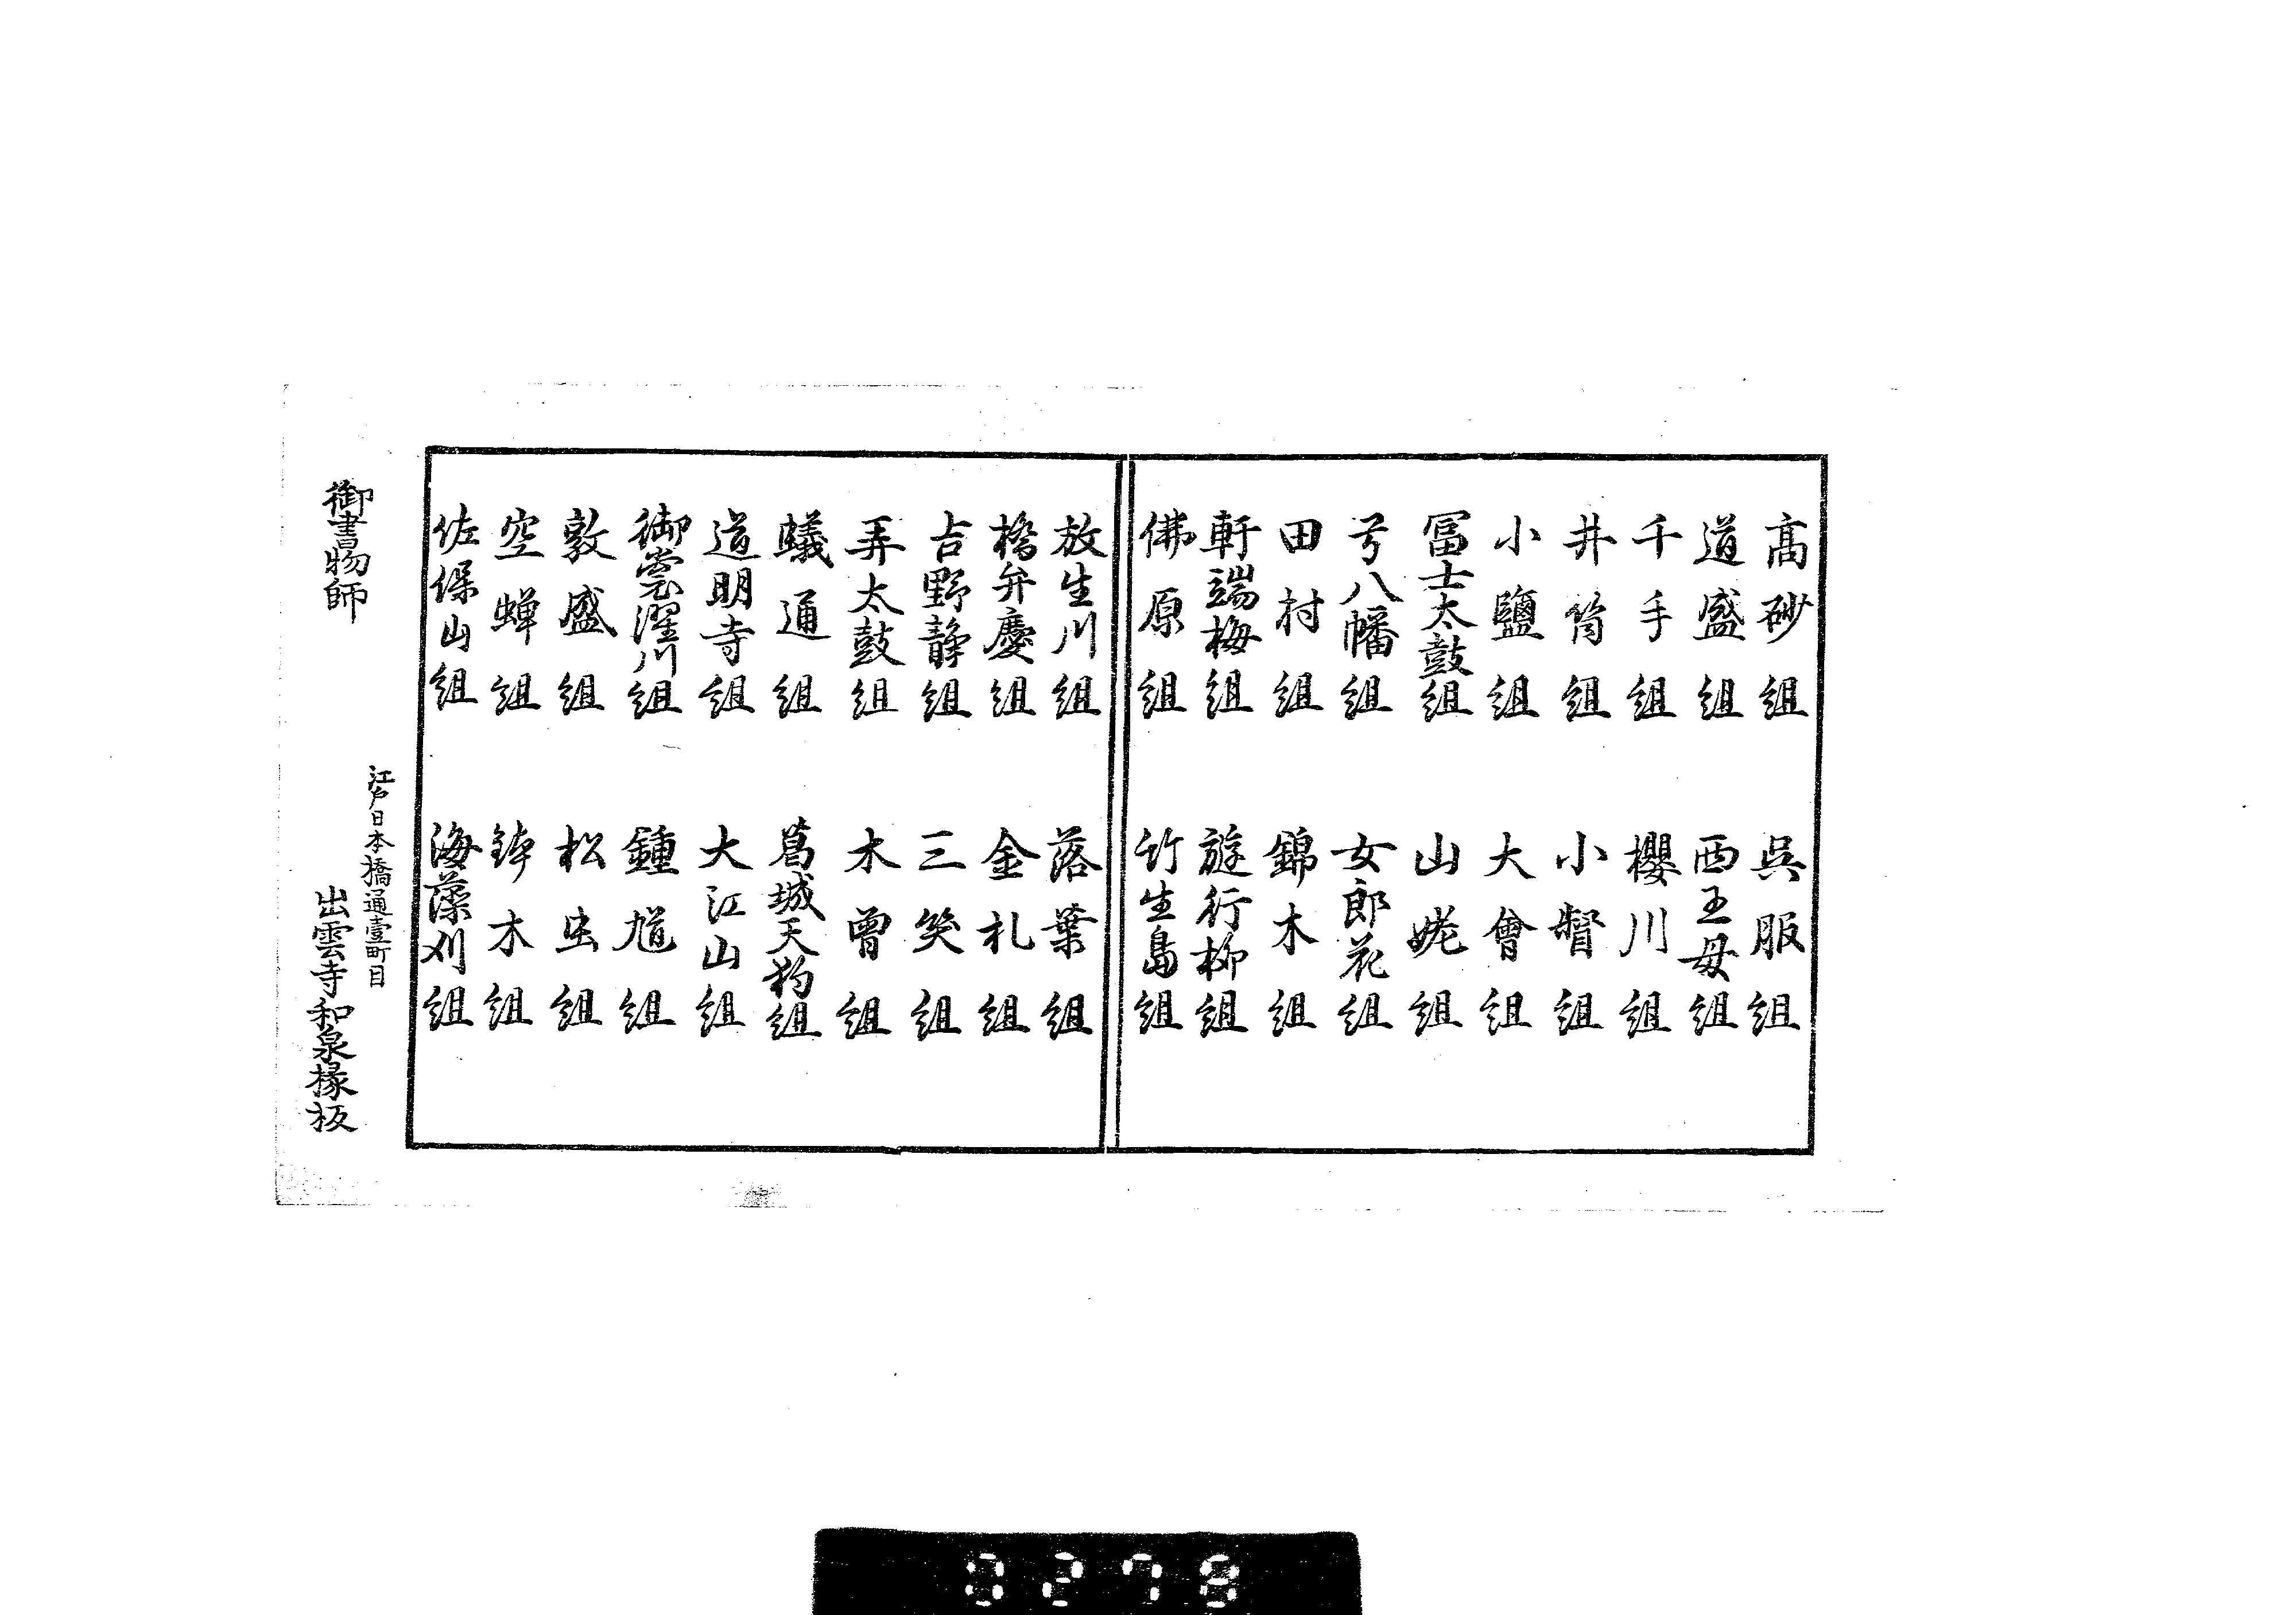 高砂組　呉服組
道盛組　西王母組
千手組　櫻川組
井筒組　小督組
小鹽組　大會組
冨士太鼓組　山姥組
弓八幡組　女郎花組
田村組　錦木組
軒端梅組　遊行柳組
佛原組　竹生島組
放生川組　落葉組
橋弁慶組　金札組
吉野静組　三笑組
弄太鼓組　木曽組
蟻通組　葛城天狗組
道明寺組　大江山組
御裳濯川組　鍾馗組
敦盛組　松虫組
空蝉組　鉢木組
佐保山組　海藻刈組
江戸日本橋通壹町目
御書物師　出雲寺和泉掾板
0278